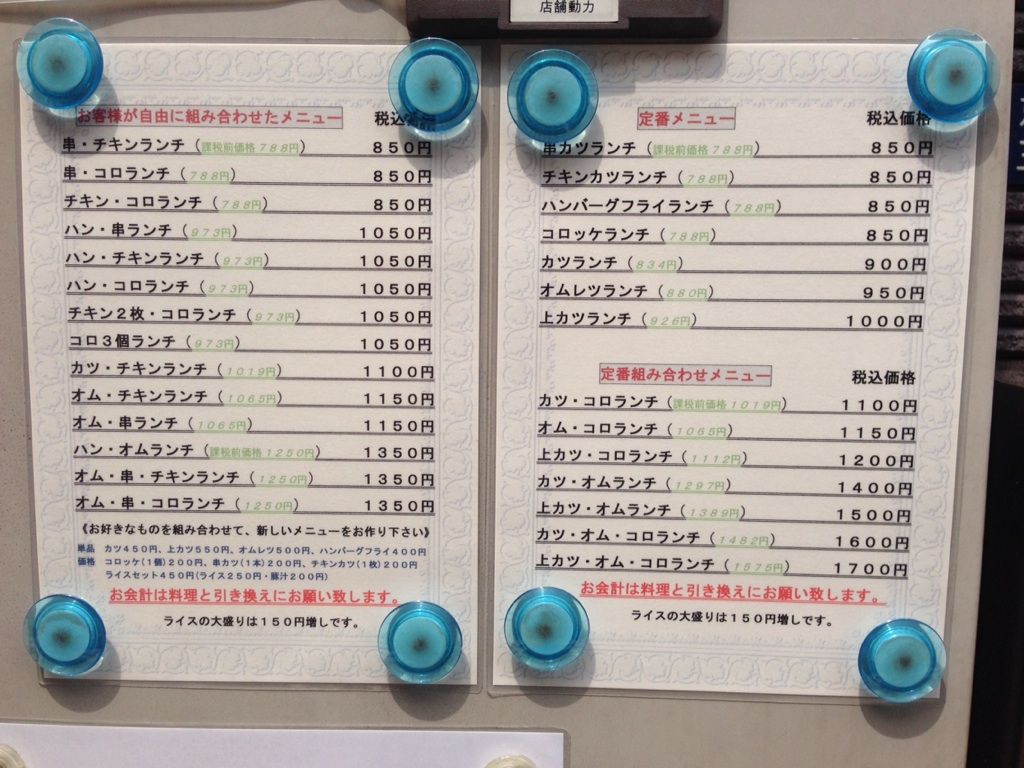 店舗動力
お客様が自由に組み合わせたメニュー 税込
串・チキンランチ（課税前価格７８８円） ８５０円
串・コロランチ（７８８円） ８５０円
チキン・コロランチ（７８８円） ８５０円
ハン・串ランチ（９７３円） １０５０円
ハン・チキンランチ（９７３円） １０５０円
ハン・コロランチ（９７３円） １０５０円
チキン２枚・コロランチ（９７３円） １０５０円
コロ３個ランチ（９７３円） １０５０円
カツ・チキンランチ（１０１９円） １１００円
オム・チキンランチ（１０６５円） １１５０円
オム・串ランチ（１０６５円） １１５０円
ハン・オムランチ（課税前価格１２５０円） １３５０円
オム・串・チキンランチ（１２５０円） １３５０円
オム・串・コロランチ（１２５０円） １３５０円
《お好きなものを組み合わせて、新しいメニューをお作り下さい》
単品 カツ４５０円、上カツ５５０円、オムレツ５００円、ハンバーグフライ４００円
価格 コロッケ(１個)２００円、串カツ(１本)２００円、チキンカツ(１枚)２００円
ライスセット４５０円(ライス２５０円・豚汁２００円)
お会計は料理と引き換えにお願い致します。
ライスの大盛りは１５０円増しです。
定番メニュー 税込価格
串カツランチ（課税前価格７８８円） ８５０円
チキンカツランチ（７８８円） ８５０円
ハンバーグフライランチ（７８８円） ８５０円
コロッケランチ（７８８円） ８５０円
カツランチ（８３４円） ９００円
オムレツランチ（８８０円） ９５０円
上カツランチ（９２６円） １０００円
定番組み合わせメニュー 税込価格
カツ・コロランチ（課税前価格１０１９円） １１００円
オム・コロランチ（１０６５円） １１５０円
上カツ・コロランチ（１１１２円） １２００円
カツ・オムランチ（１２９７円） １４００円
上カツ・オムランチ（１３８９円） １５００円
カツ・オム・コロランチ（１４８２円） １６００円
上カツ・オム・コロランチ（１５７５円） １７００円
お会計は料理と引き換えにお願い致します。
ライスの大盛りは１５０円増しです。